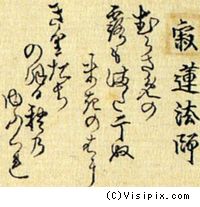 寂蓮法師
むらさめの
露もまた干ぬ
まきのはに
きり立ち
のほる秋乃
ゆふくれ
(C)Visipix.com